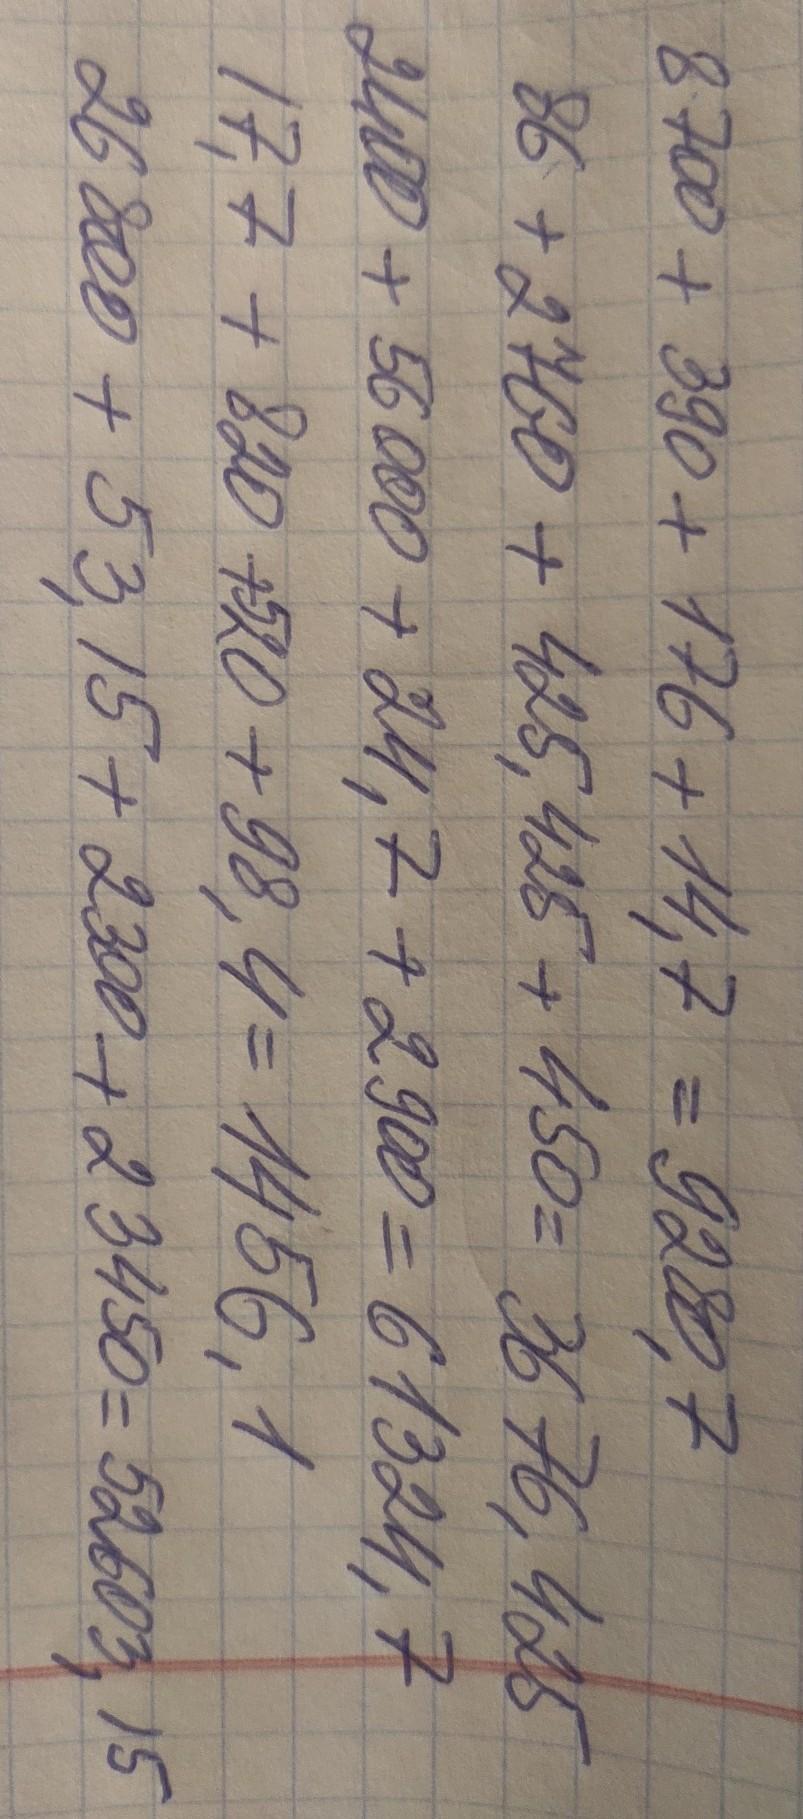 8700 + 390 + 176 + 14,7 = 9280,7
86 + 2760 + 425,425 + 450 = 3676,425
2400 + 56000 + 24,7 + 2900 = 61324,7
17,7 + 820 + 520 + 98,4 = 1456,1
26800 + 53,15 + 2300 + 23450 = 52603,15